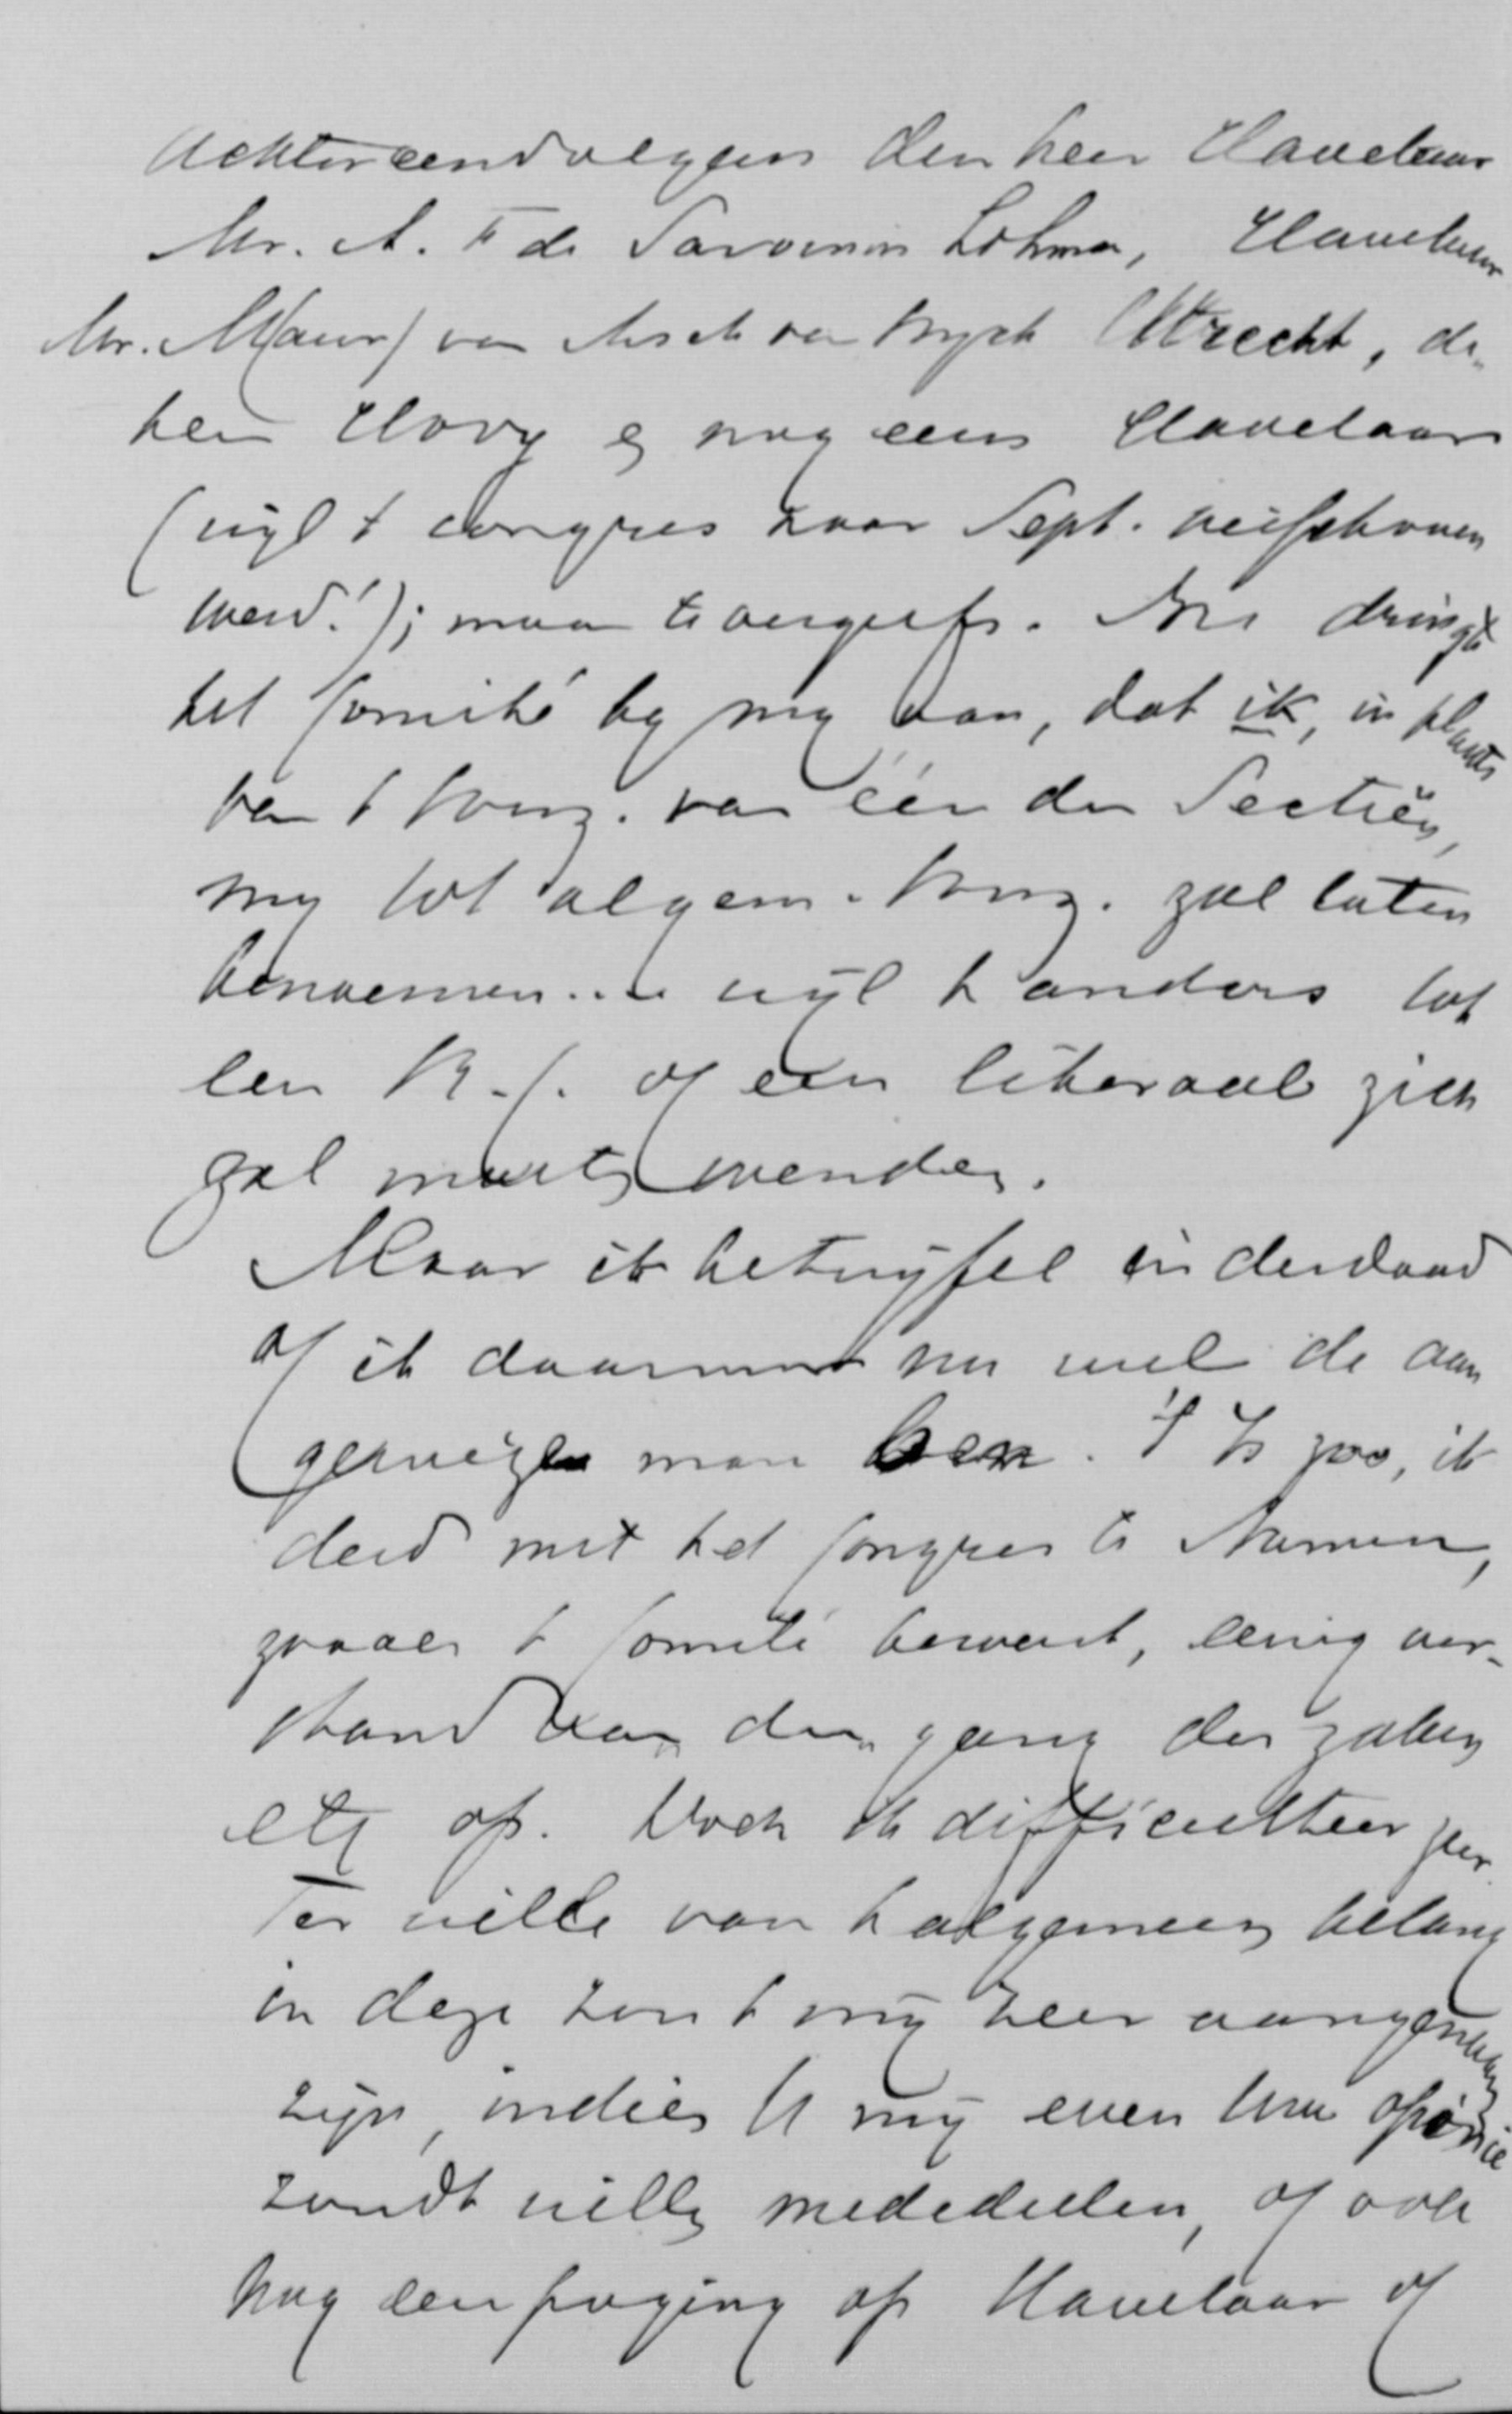 Achtereenvolgens den heer Havelaar
Mr. A. F de Savornin Lohman, Havelaar
Mr. M(aur) van Asch van Wijck Utrecht, de
heer Hovy en nog eens Havelaar
(wijl 't congres naar Sept. verschoven
werd!); maar te vergeefs. Nu dringt
het Comité by my aan, dat ik, in plaats
van 't voorz. van één der Sectiën,
my tot algem. voorz. zal laten
benoemen... wijl 't anders tot
een R.C. of een liberaal zich
zal moeten wenden.
Maar ik betwijfel inderdaad
of ik daarvoor nu wel de aan
gewezen man ben. 't Is zoo, ik
deed met het Congres te
zooals 't Comité beweert, eenig ver-
stand van den gang der zaken
etc op. Doch ik difficulteer zeer.
Ter wille van 't algemeen belang
in deze zou 't mij zeer aangenaam
zijn, indien U mij even Uw opinie
zoudt willen mededeelen, of ook
nog een poging op Havelaar of